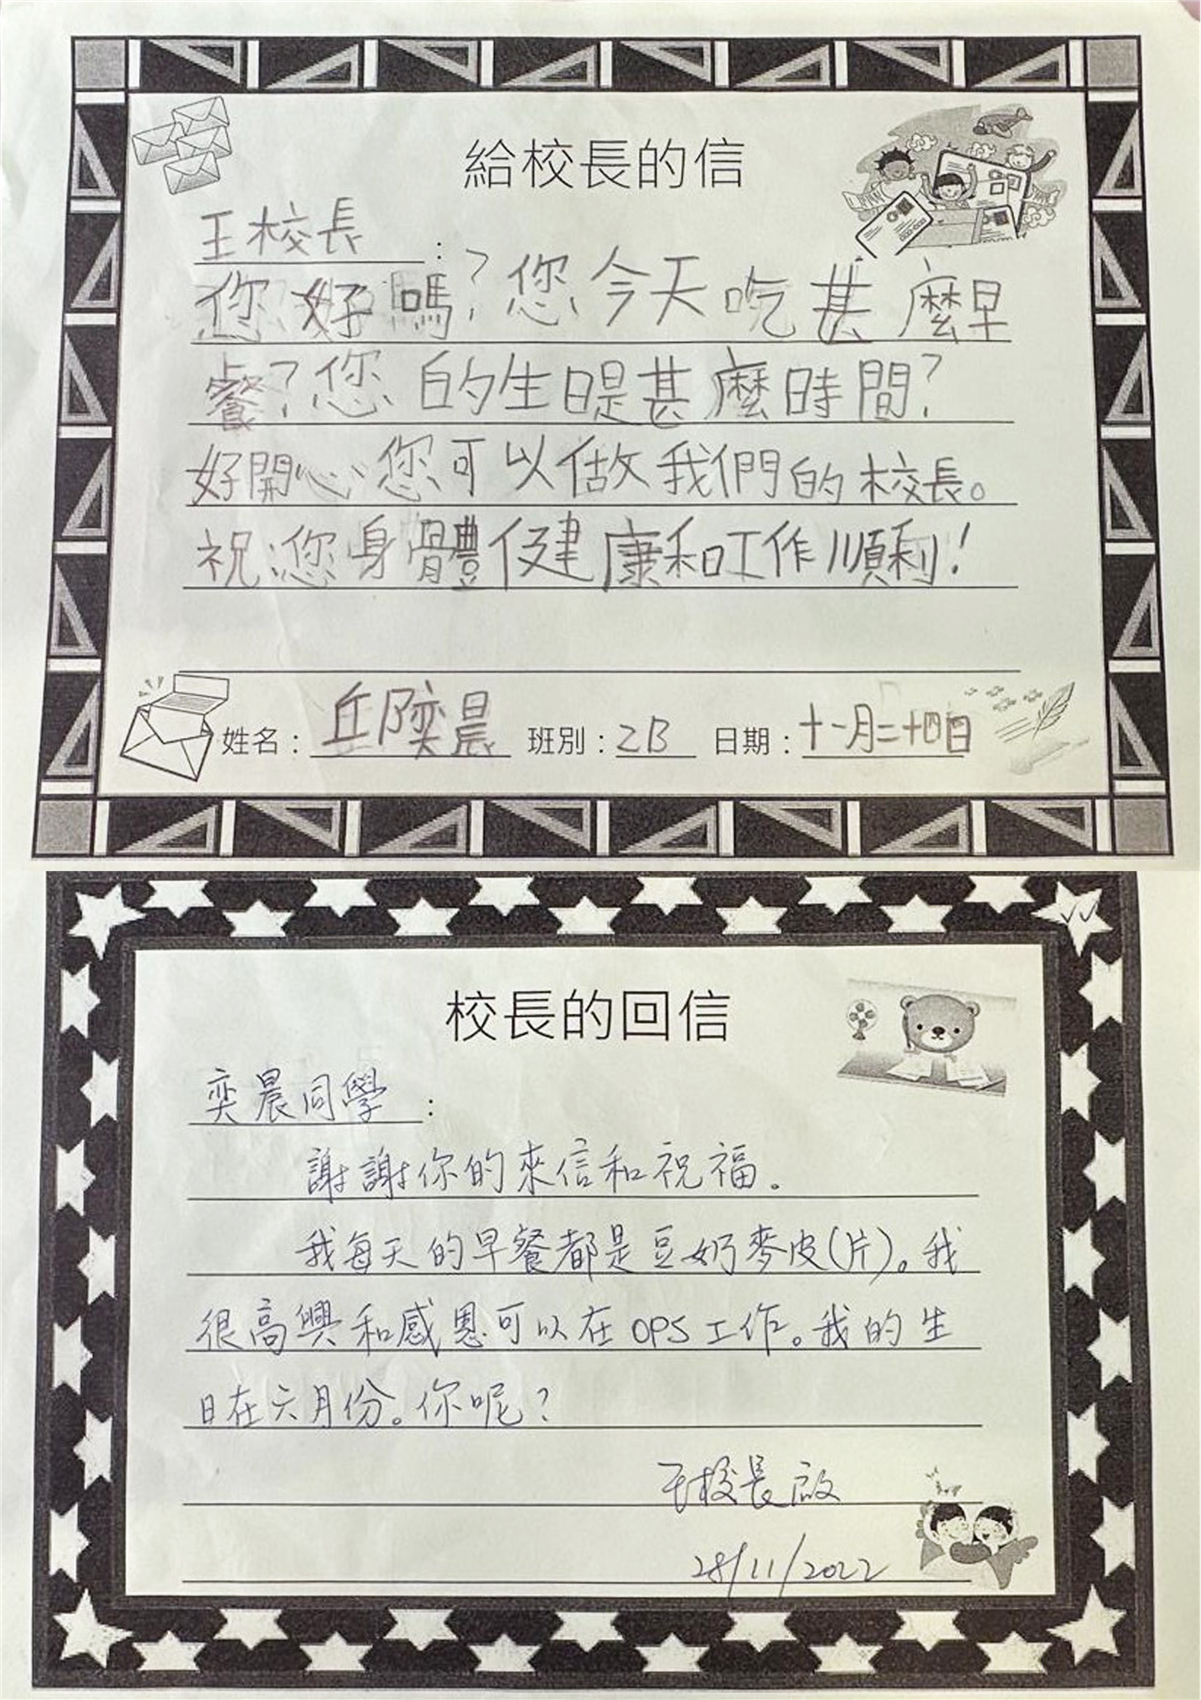 給校長的信
王校長：
您好嗎?您今天吃甚麼早
餐?您的生日是甚麼時間?
好開心您可以做我們的校長。
祝您身體健康和工作順利!
姓名：丘阝奕晨 班別：2B 日期：十一月二十四日
校長的回信
奕晨同學：
謝謝你的來信和祝福。
我每天的早餐都是豆奶麥皮(片)。我
很高興和感恩可以在OPS工作。我的生
日在六月份。你呢?
王校長啟
28/11/2022